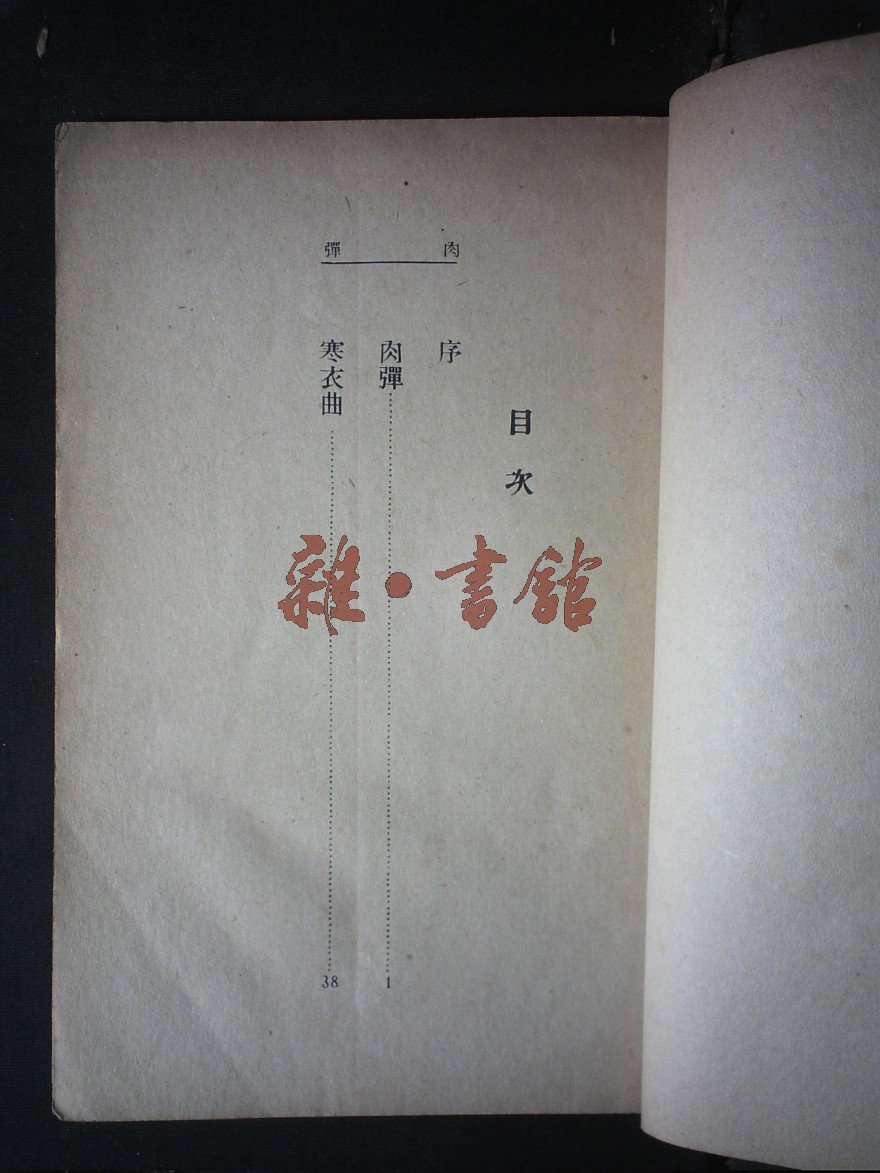 肉彈
目次
序
肉彈 1
寒衣曲 38
雜·書館